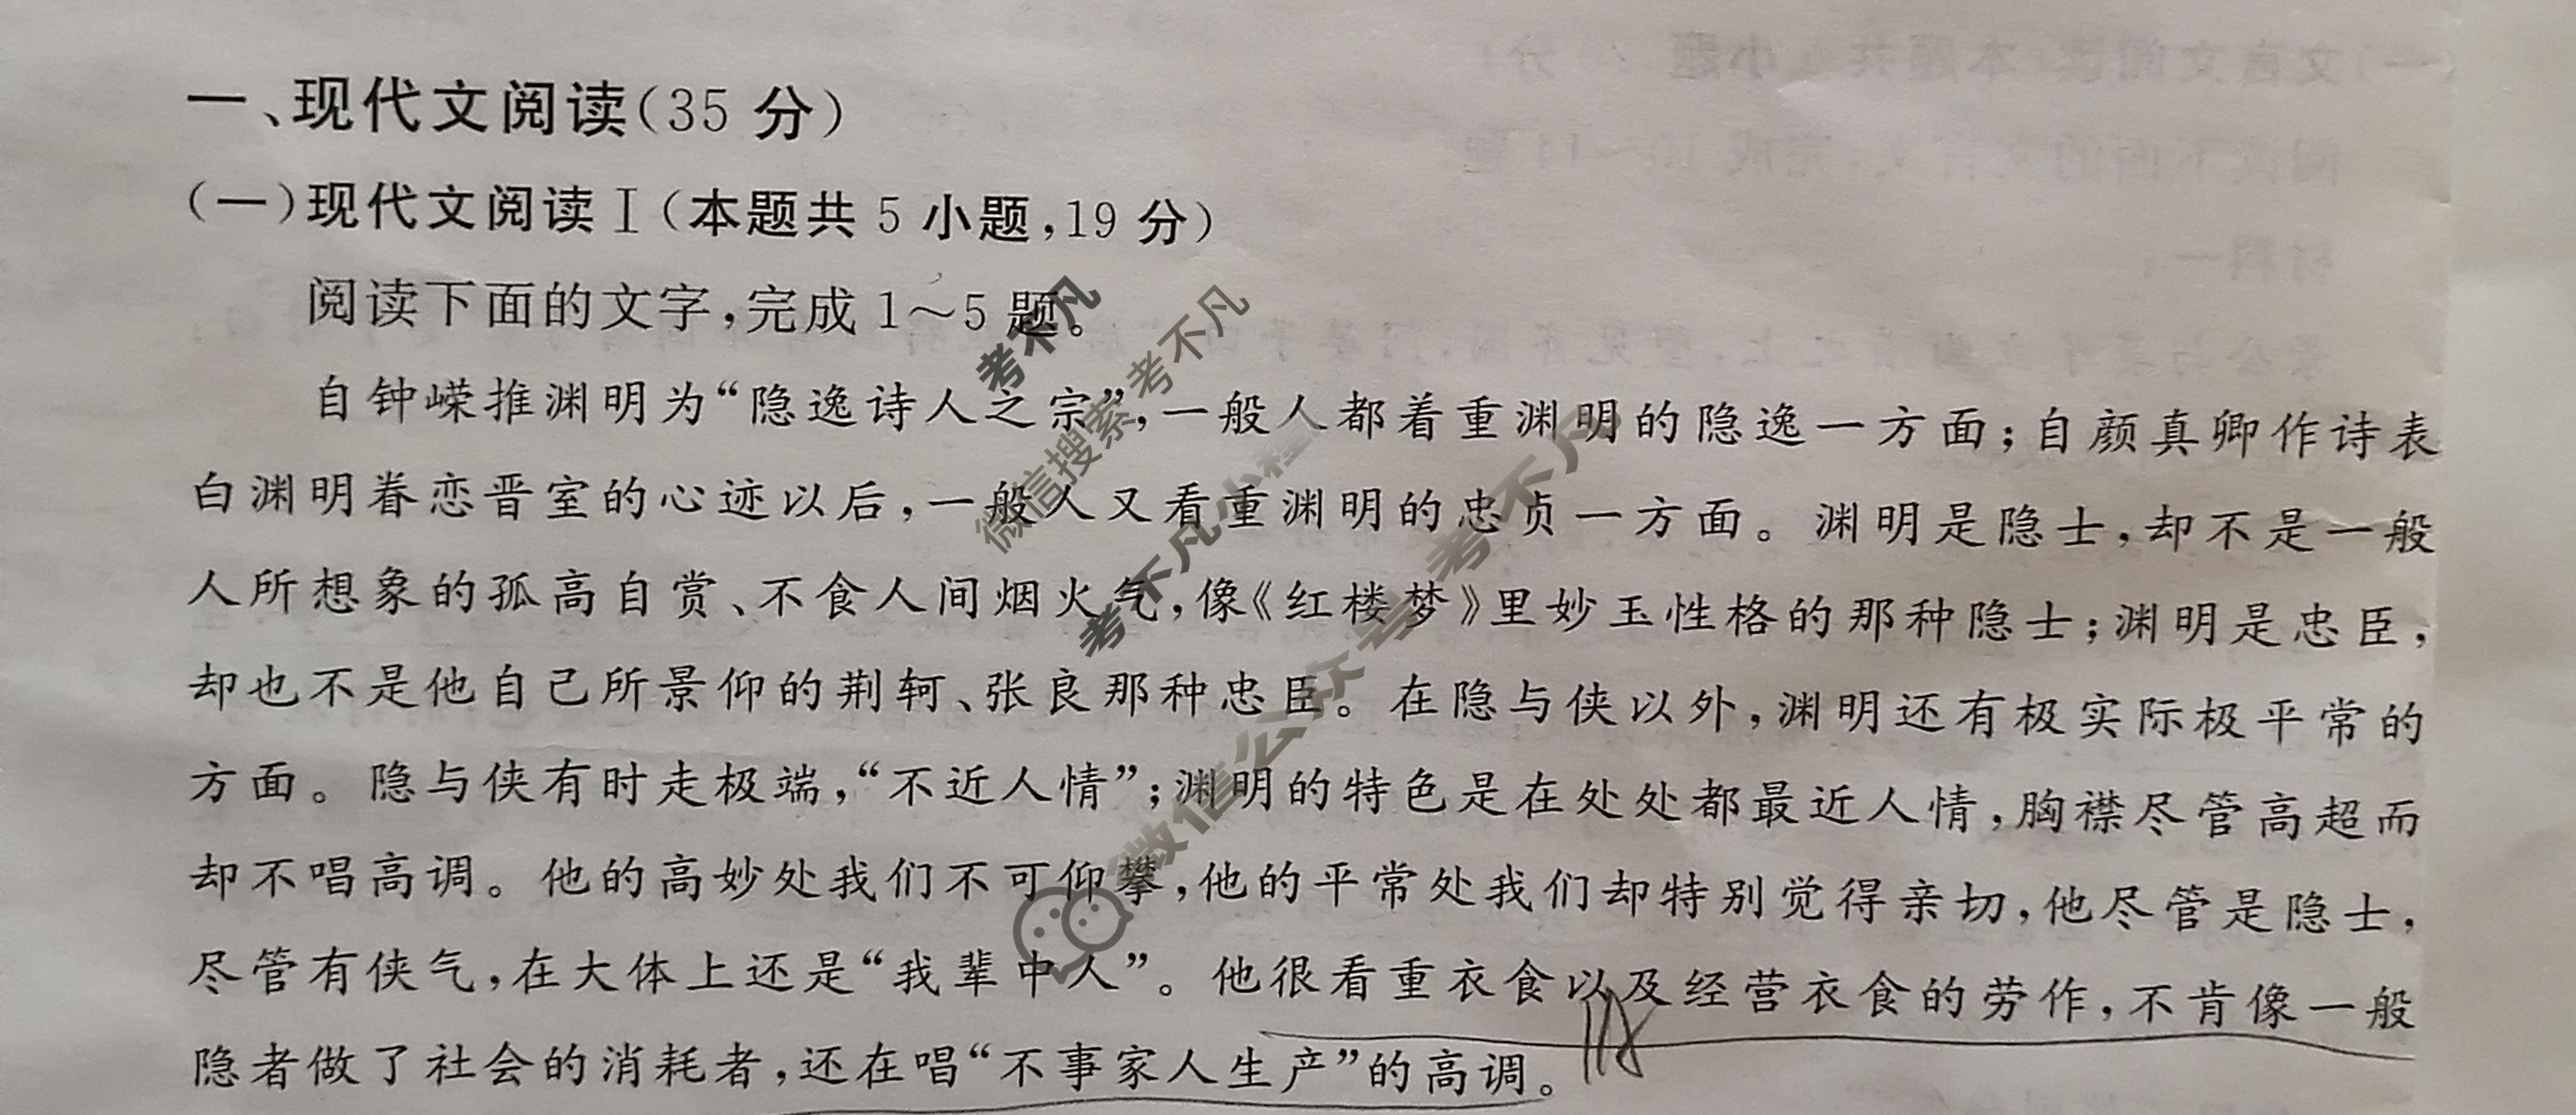 一、现代文阅读(35 分)
(一)现代文阅读Ⅰ(本题共 5 小题,19 分)
阅读下面的文字,完成 1～5 题。
自钟嵘推渊明为“隐逸诗人之宗”,一般人都着重渊明的隐逸一方面;自颜真卿作诗表
白渊明眷恋晋室的心迹以后,一般人又看重渊明的忠贞一方面。渊明是隐士,却不是一般
人所想象的孤高自赏、不食人间烟火气,像《红楼梦》里妙玉性格的那种隐士;渊明是忠臣,
却也不是他自己所景仰的荆轲、张良那种忠臣。在隐与侠以外,渊明还有极实际极平常的
方面。隐与侠有时走极端,“不近人情”;渊明的特色是在处处都最近人情,胸襟尽管高超而
却不唱高调。他的高妙处我们不可仰攀,他的平常处我们却特别觉得亲切,他尽管是隐士,
尽管有侠气,在大体上还是“我辈中人”。他很看重衣食以及经营衣食的劳作,不肯像一般
隐者做了社会的消耗者,还在唱“不事家人生产”的高调。
考不凡
微信搜索 考不凡
考不凡小程
微信公众号 考不凡